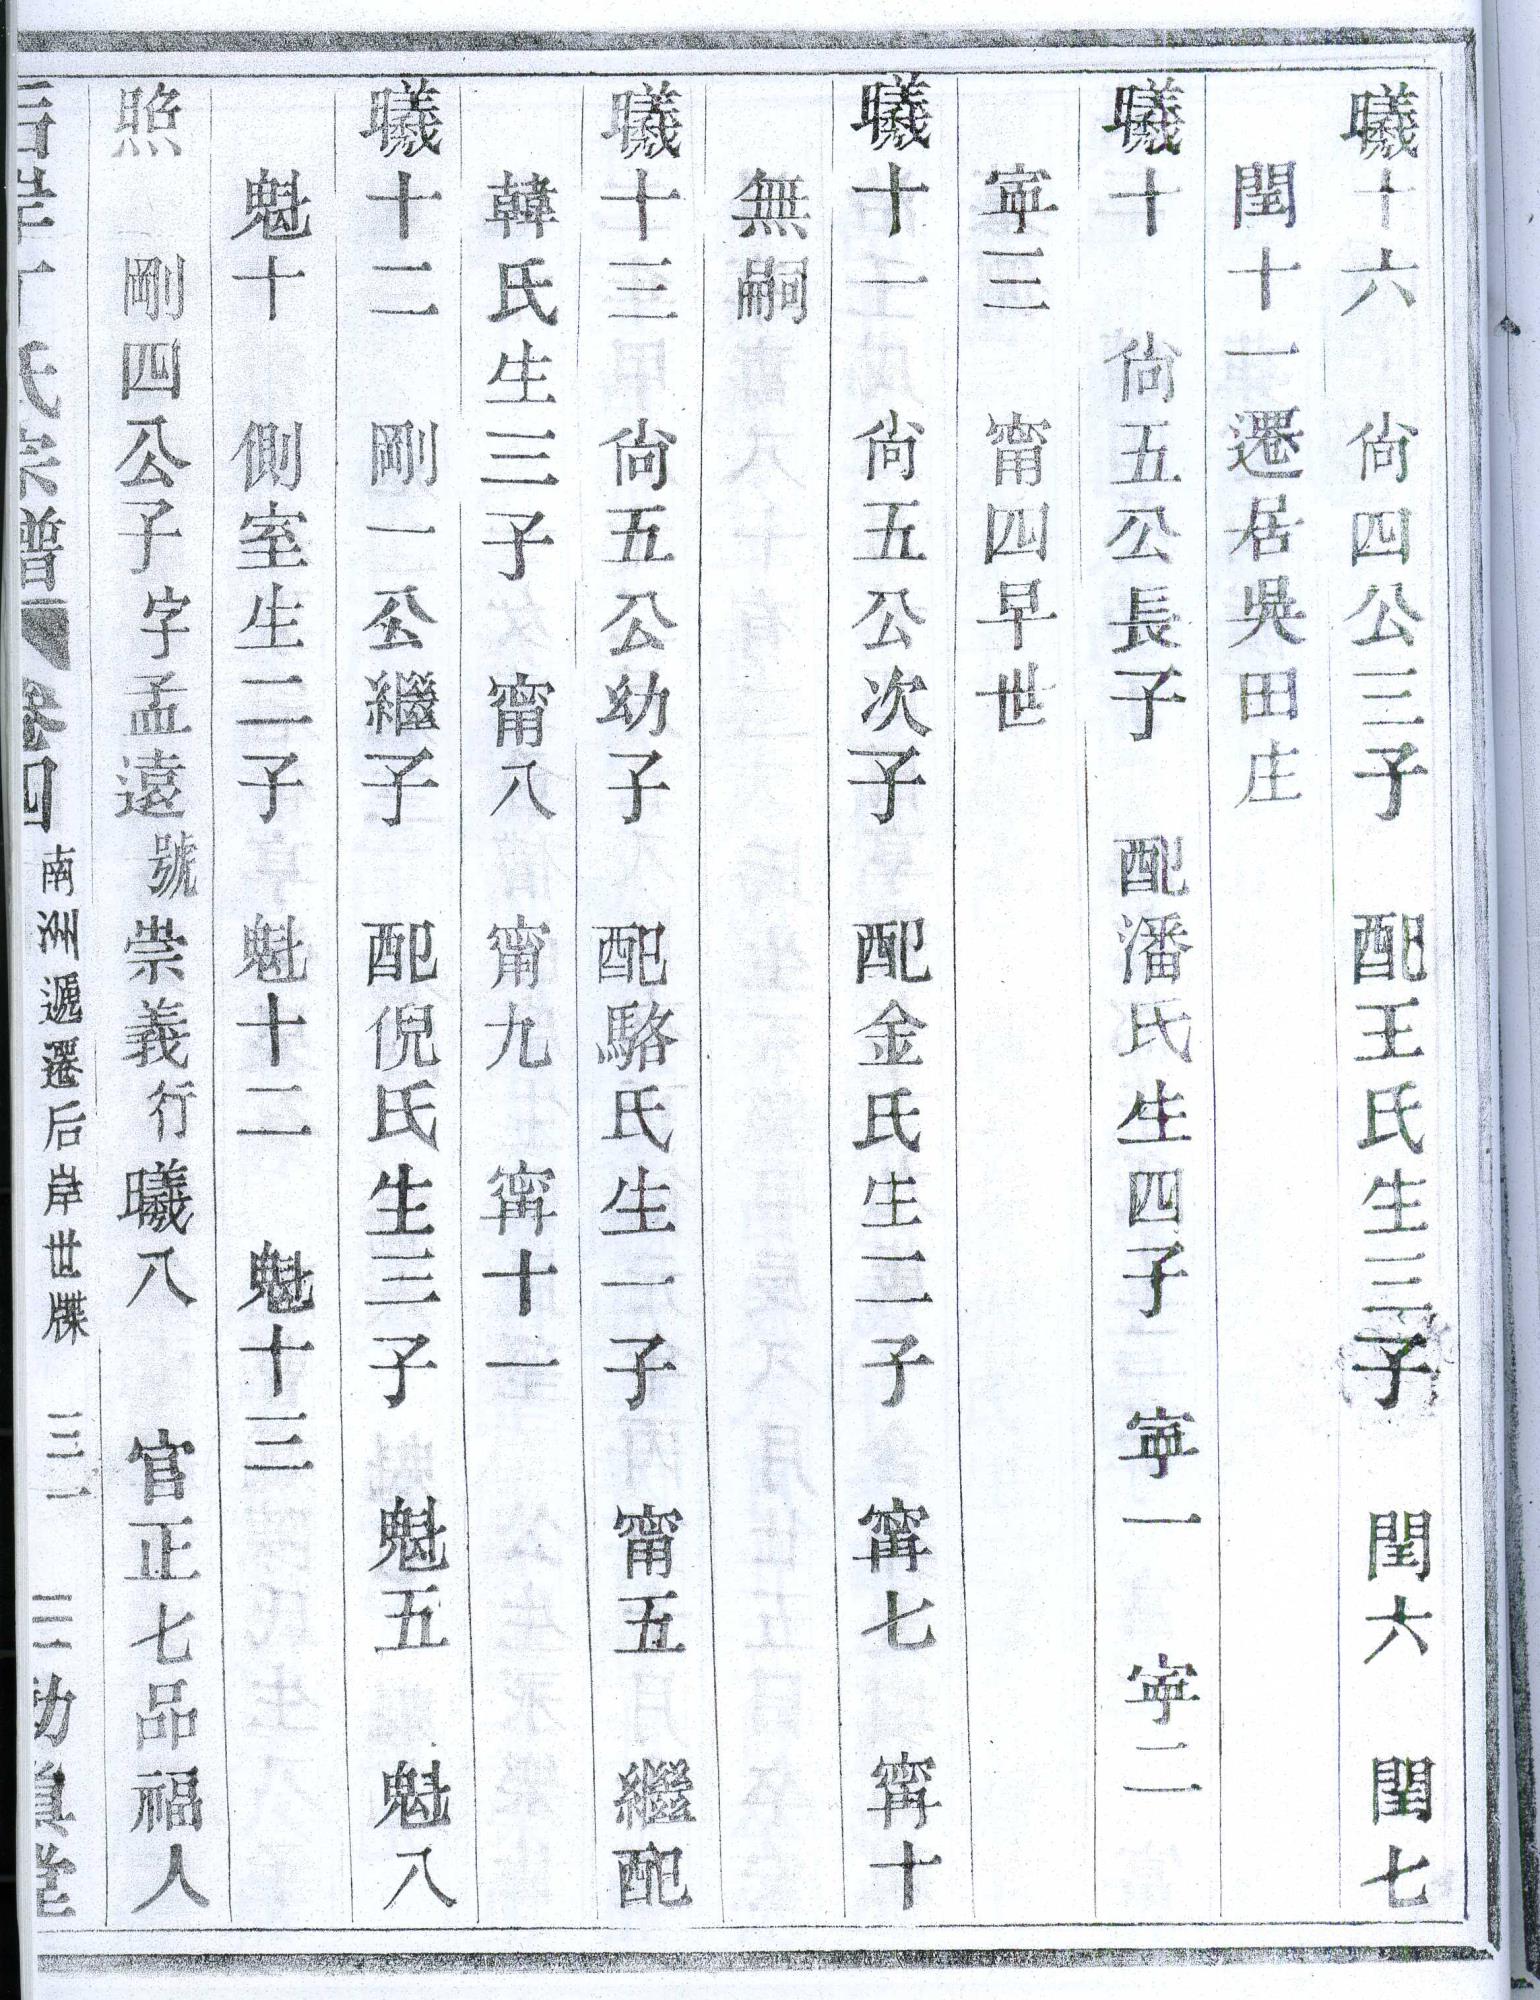 曦十六 尙四公三子 配王氏生三子 閏六 閏七
閏十一遷居吳田庄
曦十 尙五公長子 配潘氏生四子 寕一 寕二
寕三 甯四早世
曦十一 尙五公次子 配金氏生二子 寗七 寗十
無嗣
曦十三 尙五公幼子 配駱氏生一子 甯五 繼配
韓氏生三子 甯八 甯九 寗十一
曦十二 剛一公繼子 配倪氏生三子 魁五 魁八
魁十 側室生二子 魁十二 魁十三
煦 剛四公子字孟遠號崇義行曦八 官正七品福人
氏宗譜 卷四 南洲遞遷后岸世牒 三一 堂